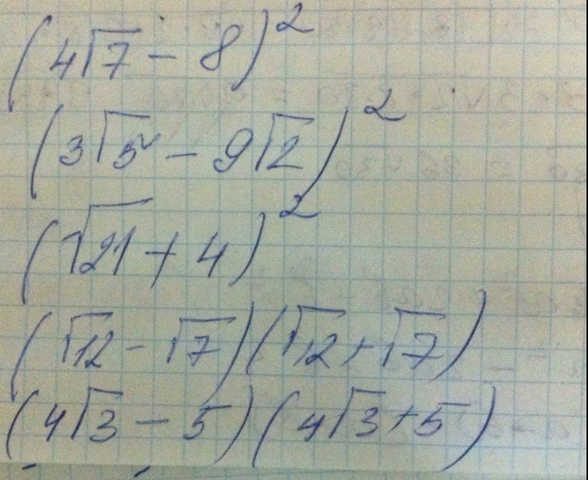 (4√7 - 8)²
(3√5 - 9√2)²
(√21 + 4)²
(√12 - √7)(√12 + √7)
(4√3 - 5)(4√3 + 5)